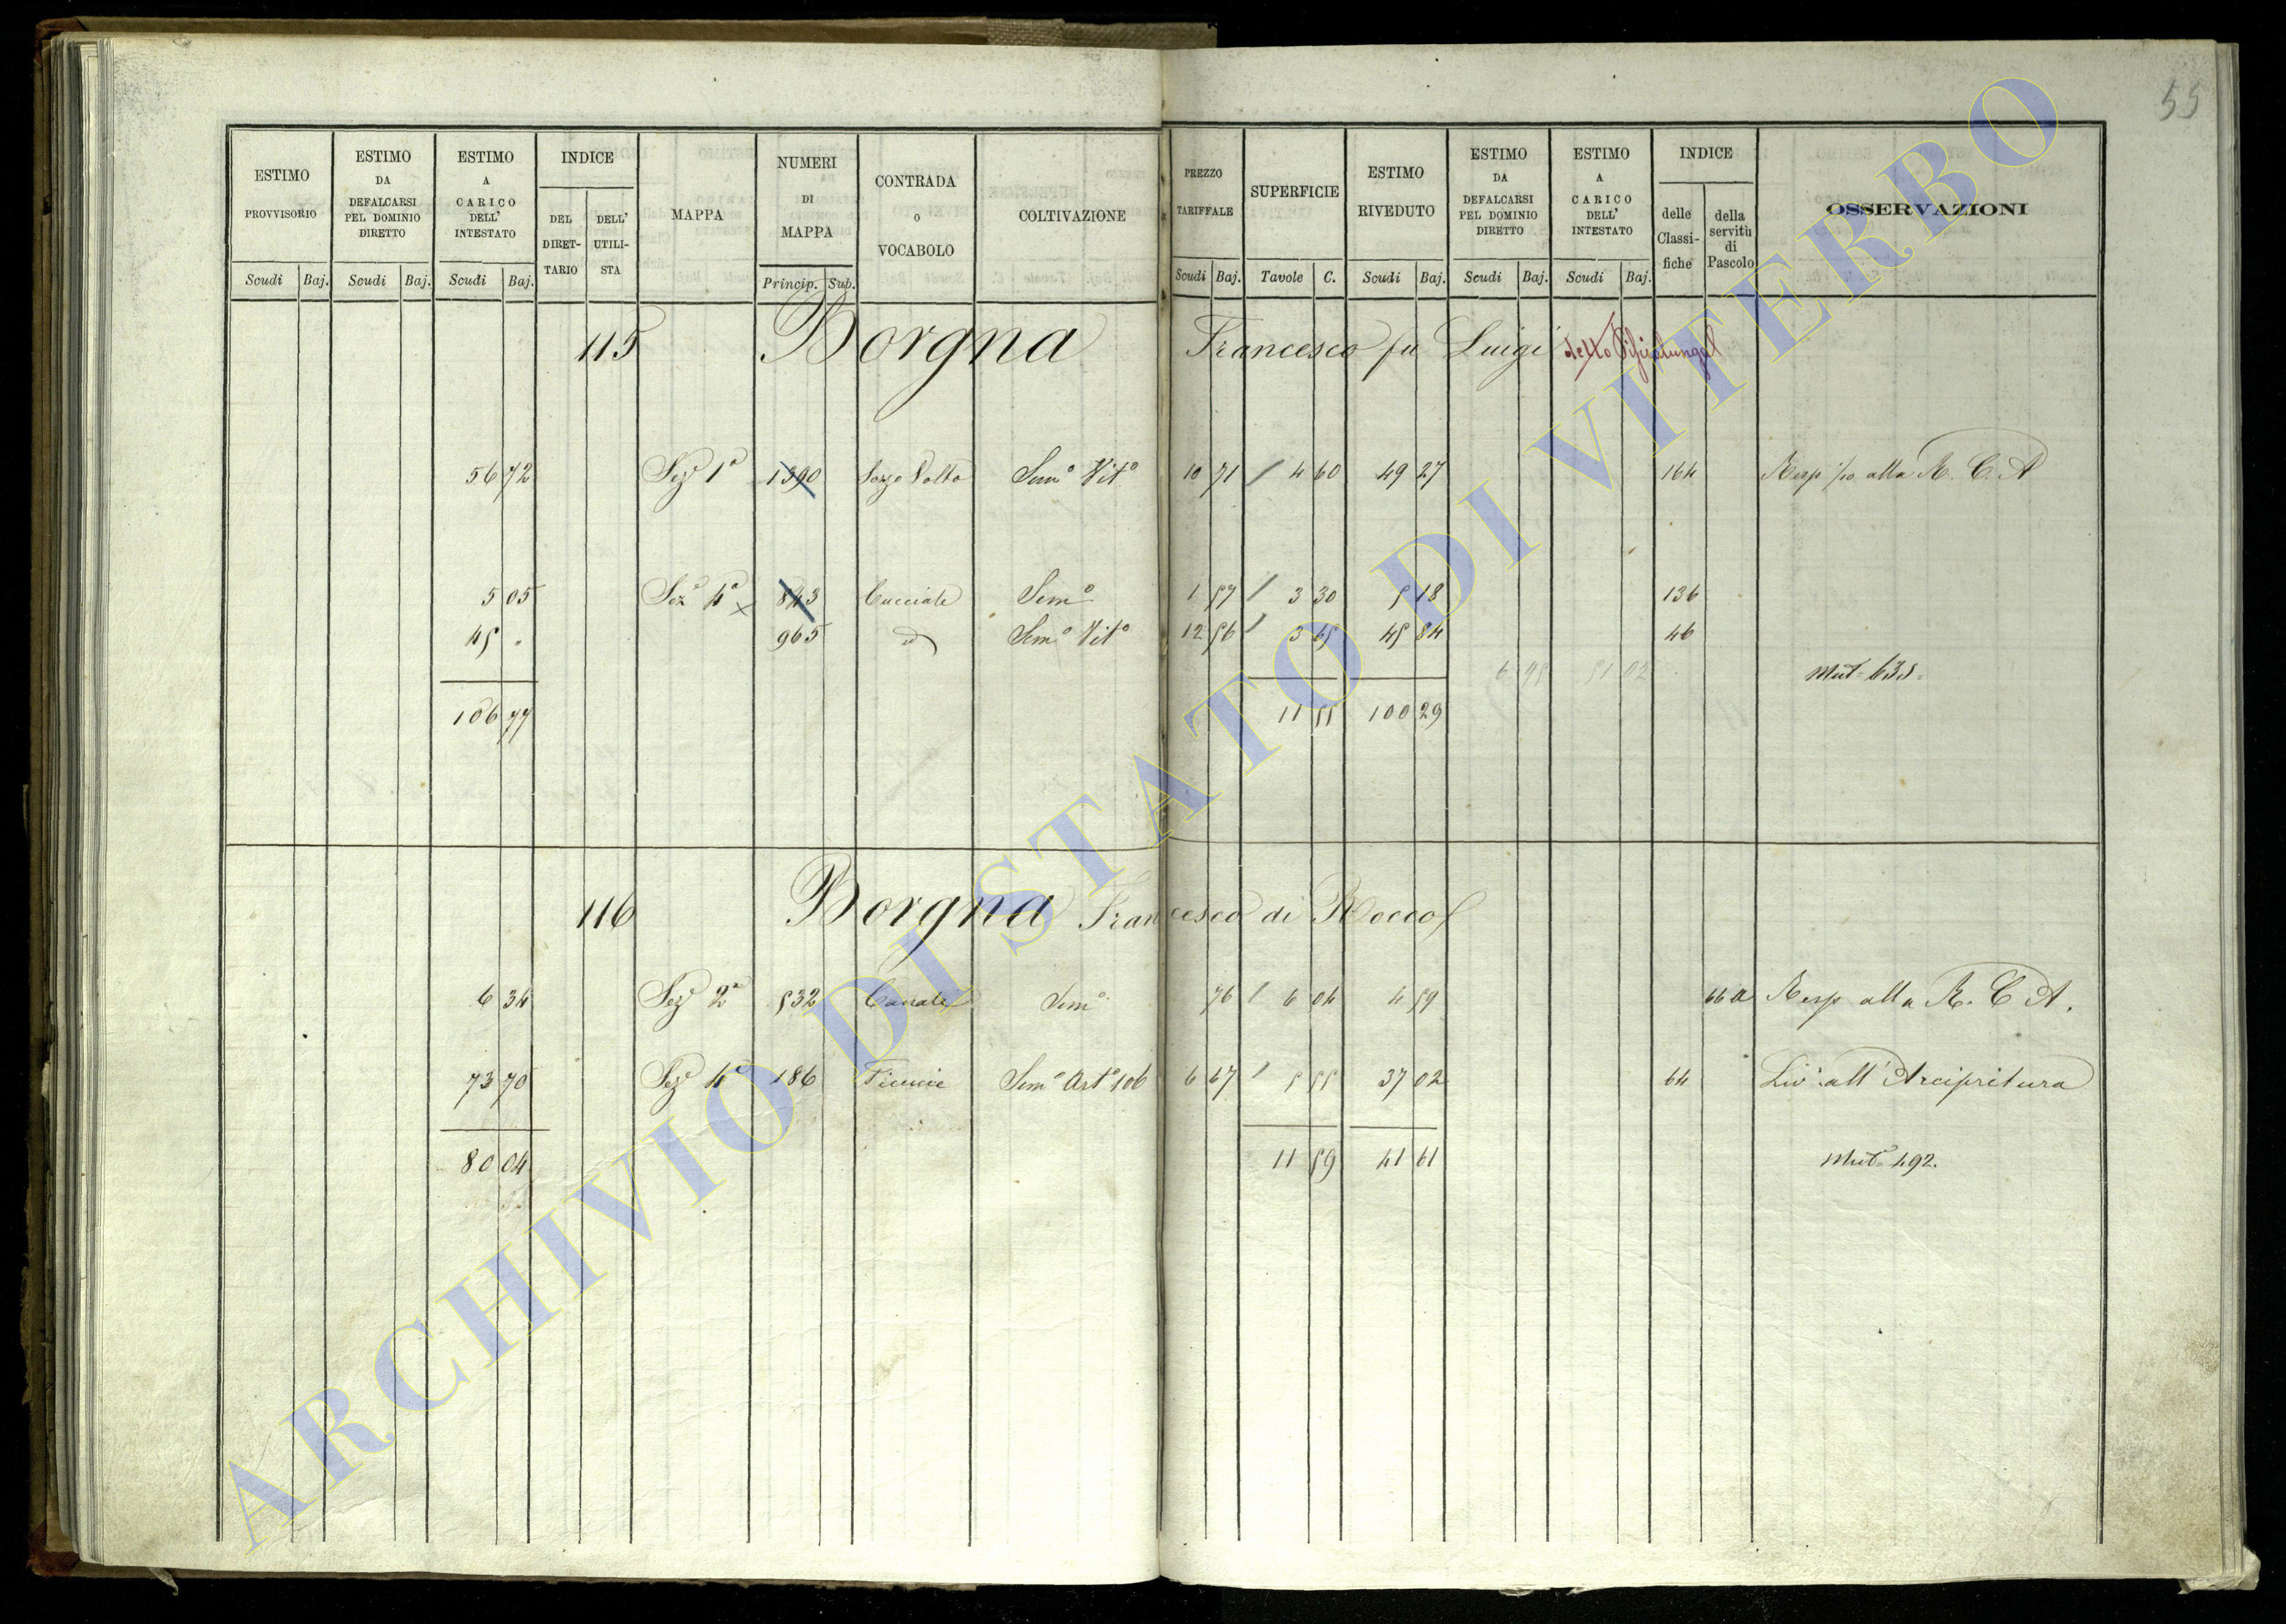 55
ESTIMO PROVVISORIO Scudi Baj.
ESTIMO DA DEFALCARSI PEL DOMINIO DIRETTO Scudi Baj.
ESTIMO A CARICO DELL' INTESTATO Scudi Baj.
INDICE DEL DIRET-TARIO DELL' UTILI-STA
MAPPA
NUMERI DI MAPPA Princip. Sub.
CONTRADA o VOCABOLO
COLTIVAZIONE
PREZZO TARIFFALE Scudi Baj.
SUPERFICIE Tavole C.
ESTIMO RIVEDUTO Scudi Baj.
ESTIMO DA DEFALCARSI PEL DOMINIO DIRETTO Scudi Baj.
ESTIMO A CARICO DELL' INTESTATO Scudi Baj.
INDICE delle Classi-fiche della servitù di Pascolo
OSSERVAZIONI
115 Borgna Francesco fu Luigi detto
56 72 Sezᵉ 1ª 1390 Semº Vitº 10 71 / 4 60 49 27 164 Resp /10 alla R. C. A
5 05 Sezᵉ 4ª 843 Cucciale Semº 1 57 / 3 30 5 18 136
45 " 965 d Semº Vitº 12 56 / 3 65 45 84 46
Mutᵉ 635
106 77 11 55 100 29
116 Borgna Francesco di Rocco
6 34 Sezᵉ 2ª 532 Canale Semº 76 / 6 04 4 59 66 a Resp alla R. C. A.
73 70 Sezᵉ 4ª 186 Semº Artº 106 6 67 / 5 55 37 02 64 Livº all' Arcipritura
80 04 11 59 41 61 Mutᵉ 492.
ARCHIVIO DI STATO DI VITERBO